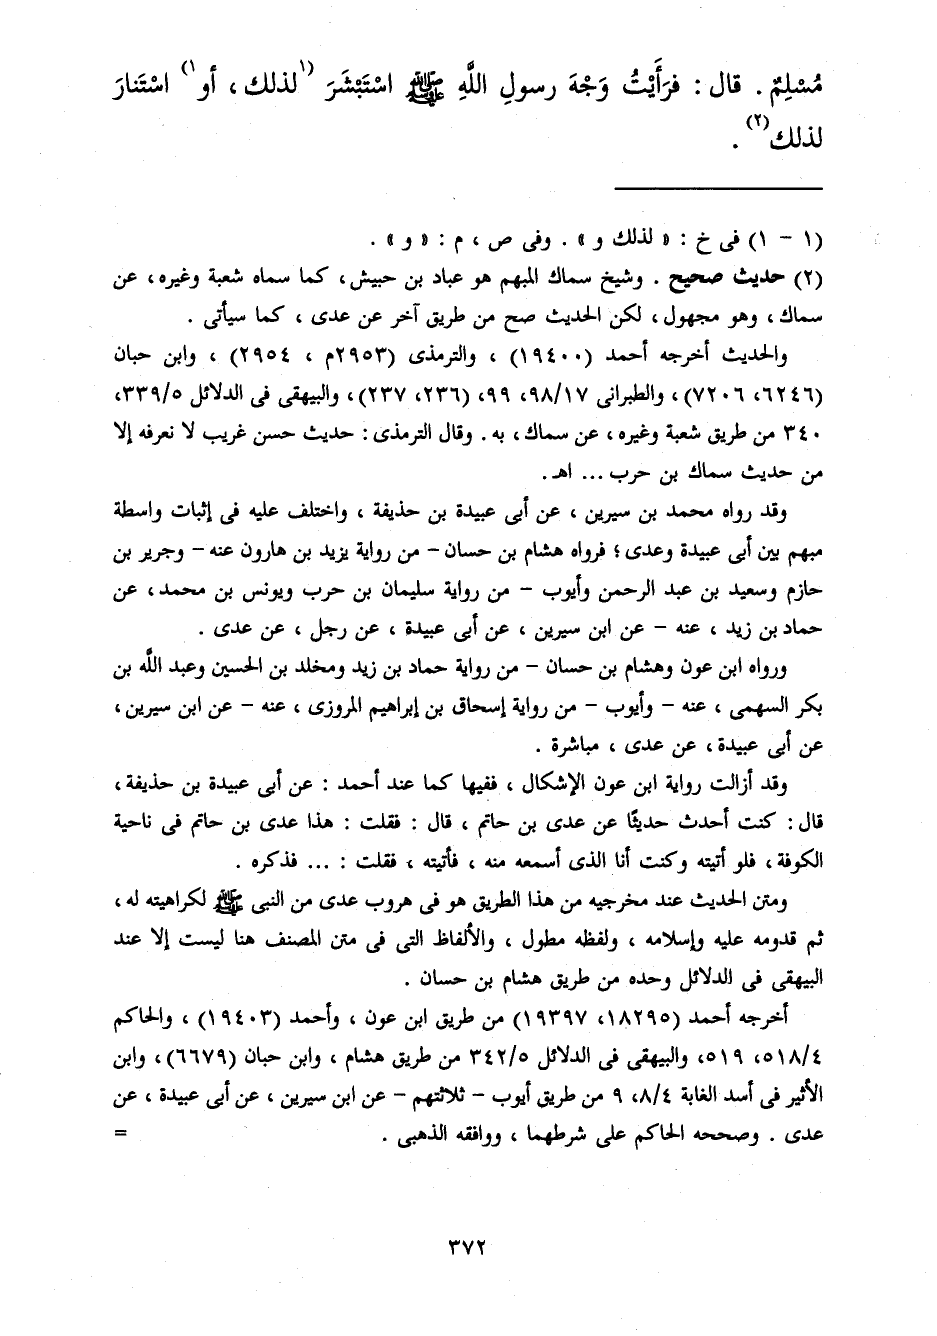 مُسْلِمٌ . قال : فرَأَيْتُ وَجْهَ رسولِ اللَّهِ ﷺ اسْتَبْشَرَ (١لذلك ، أو١) اسْتَنارَ
لذلك(٢) .
(١ - ١) فى خ : « لذلك و » . وفى ص ، م : « و » .
(٢) حديث صحيح . وشيخ سماك المبهم هو عباد بن حبيش، كما سماه شعبة وغيره، عن
سماك، وهو مجهول، لكن الحديث صح من طريق آخر عن عدى ، كما سيأتى .
والحديث أخرجه أحمد (١٩٤٠٠) ، والترمذى (٢٩٥٣م ، ٢٩٥٤) ، وابن حبان
(٦٢٤٦، ٧٢٠٦)، والطبرانى ٩٨/١٧، ٩٩، (٢٣٦، ٢٣٧)، والبيهقى فى الدلائل ٣٣٩/٥،
٣٤٠ من طريق شعبة وغيره، عن سماك، به. وقال الترمذى: حديث حسن غريب لا نعرفه إلا
من حديث سماك بن حرب ... اهـ.
وقد رواه محمد بن سيرين ، عن أبى عبيدة بن حذيفة ، واختلف عليه فى إثبات واسطة
مبهم بين أبى عبيدة وعدى؛ فرواه هشام بن حسان - من رواية يزيد بن هارون عنه - وجرير بن
حازم وسعيد بن عبد الرحمن وأيوب - من رواية سليمان بن حرب ويونس بن محمد، عن
حماد بن زيد ، عنه - عن ابن سيرين ، عن أبى عبيدة ، عن رجل ، عن عدى .
ورواه ابن عون وهشام بن حسان - من رواية حماد بن زيد ومخلد بن الحسين وعبد اللَّه بن
بكر السهمى ، عنه - وأيوب - من رواية إسحاق بن إبراهيم المروزى ، عنه - عن ابن سيرين،
عن أبى عبيدة، عن عدى ، مباشرة .
وقد أزالت رواية ابن عون الإشكال ، ففيها كما عند أحمد : عن أبى عبيدة بن حذيفة،
قال: كنت أحدث حديثًا عن عدى بن حاتم ، قال : فقلت : هذا عدى بن حاتم فى ناحية
الكوفة، فلو أتيته وكنت أنا الذى أسمعه منه ، فأتيته ، فقلت : ... فذكره .
ومتن الحديث عند مخرجيه من هذا الطريق هو فى هروب عدى من النبى ﷺ لكراهيته له ،
ثم قدومه عليه وإسلامه ، ولفظه مطول ، والألفاظ التى فى متن المصنف هنا ليست إلا عند
البيهقى فى الدلائل وحده من طريق هشام بن حسان .
أخرجه أحمد (١٨٢٩٥، ١٩٣٩٧) من طريق ابن عون ، وأحمد (١٩٤٠٣) ، والحاكم
٥١٨/٤، ٥١٩، والبيهقى فى الدلائل ٣٤٢/٥ من طريق هشام ، وابن حبان (٦٦٧٩)، وابن
الأثير فى أسد الغابة ٨/٤، ٩ من طريق أيوب - ثلاثتهم - عن ابن سيرين ، عن أبى عبيدة ، عن
عدى . وصححه الحاكم على شرطهما ، ووافقه الذهبى . =
٣٧٢